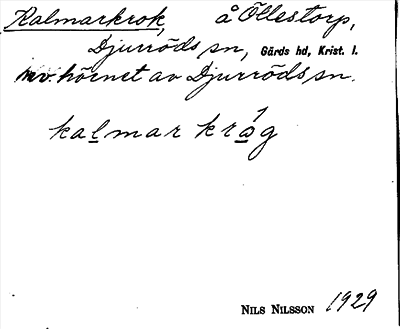 Kalmarkrok, å Öllestorp,
Djurröds sn, Gärds hd, Krist. l.
nv. hörnet av Djurröds sn.
kalmar kråg
NILS NILSSON 1929